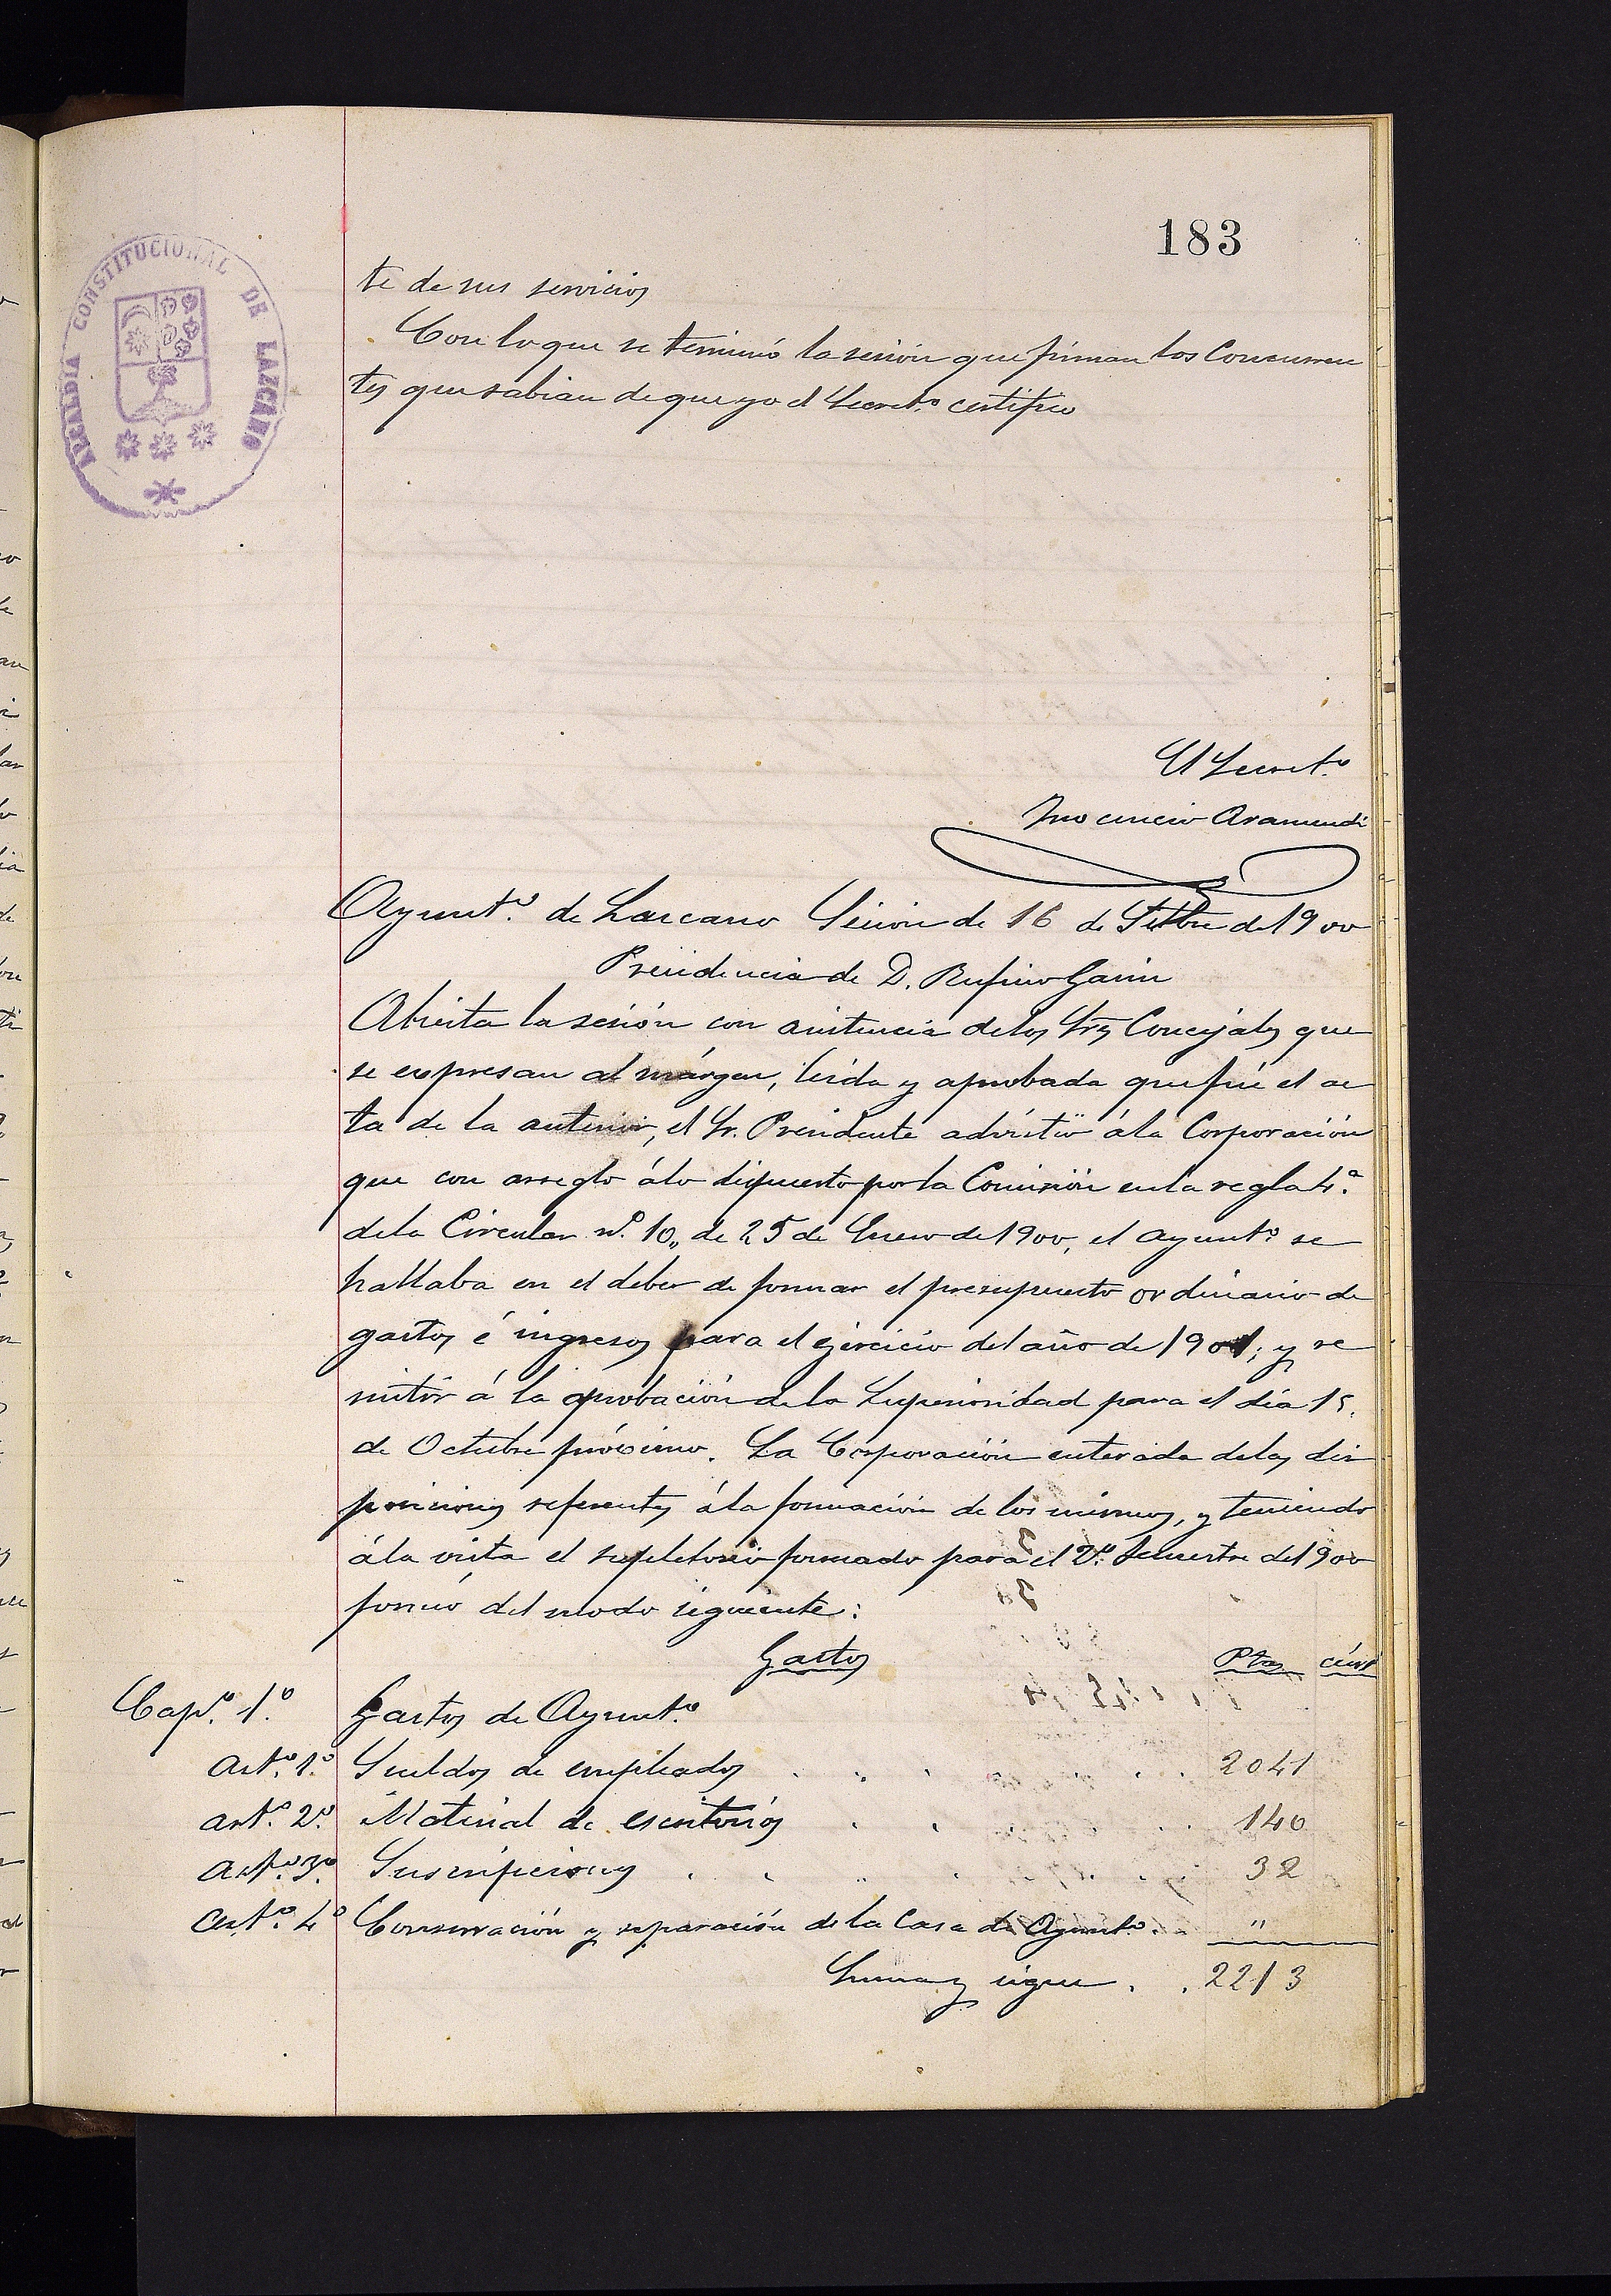 183
ALCALDIA CONSTITUCIONAL DE LAZCANO
te de sus servicios
Con lo que se terminó la sesión que firman los Concurren
tes que sabian de que yo el Secret.º certifico
El Secret.º
Inocencio Aramendi
Ayunt.º de Lazcano Sesion de 16 de Setbre de 1900
Presidencia de D. Rufino Garin
Abierta la sesión con asistencia de los Srs Concejales que
se expresan al márgen, leida y aprobada que fué el ac
ta de la anterior, el Sr. Presidente advirtió á la Corporación
que con arreglo á lo dispuesto por la Comisión en la regla 4.ª
de la Circular n.º 10,, de 25 de Enero de 1900, el ayunt.º se
hallaba en el deber de formar el presupuesto ordinario de
gastos é ingresos para el ejercicio del año de 1901; y re
mitir á la aprobación de la Superioridad para el dia 15.
de Octubre próximo. La Corporación enterada de las dis
posiciones referentes á la formación de los mismos, y teniendo
á la vista el supletorio formado para el 2.º Semestre de 1900
formó del modo siguiente:
Gastos Ptas cént
Cap.º 1.º Gastos de Ayunt.º
Art.º 1.º Sueldos de empleados 2041
art.º 2.º Material de escritorios 140
art.º 3.º Suscripciones 32
art.º 4.º Conservación y reparación de la Casa de Ayunt.º "
Suma y sigue . . 2213